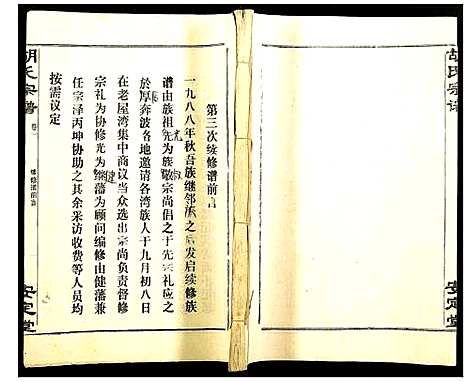 第三次续修谱前言
一九八八年秋吾族继邻族之后发启续修族
谱由族祖先为族敬宗尚倡之于先宗礼应之
於厚奔波各地邀请各湾族人于九月初八日
在老屋湾集中商议当众选出宗尚负责督修
宗礼为协修光为继藩为顾问编修由健藩兼
任宗泽丙坤协助之其余采访收费等人员均
按需议定
胡氏宗谱
卷
续修谱前言
安定堂
胡氏宗谱
安定堂